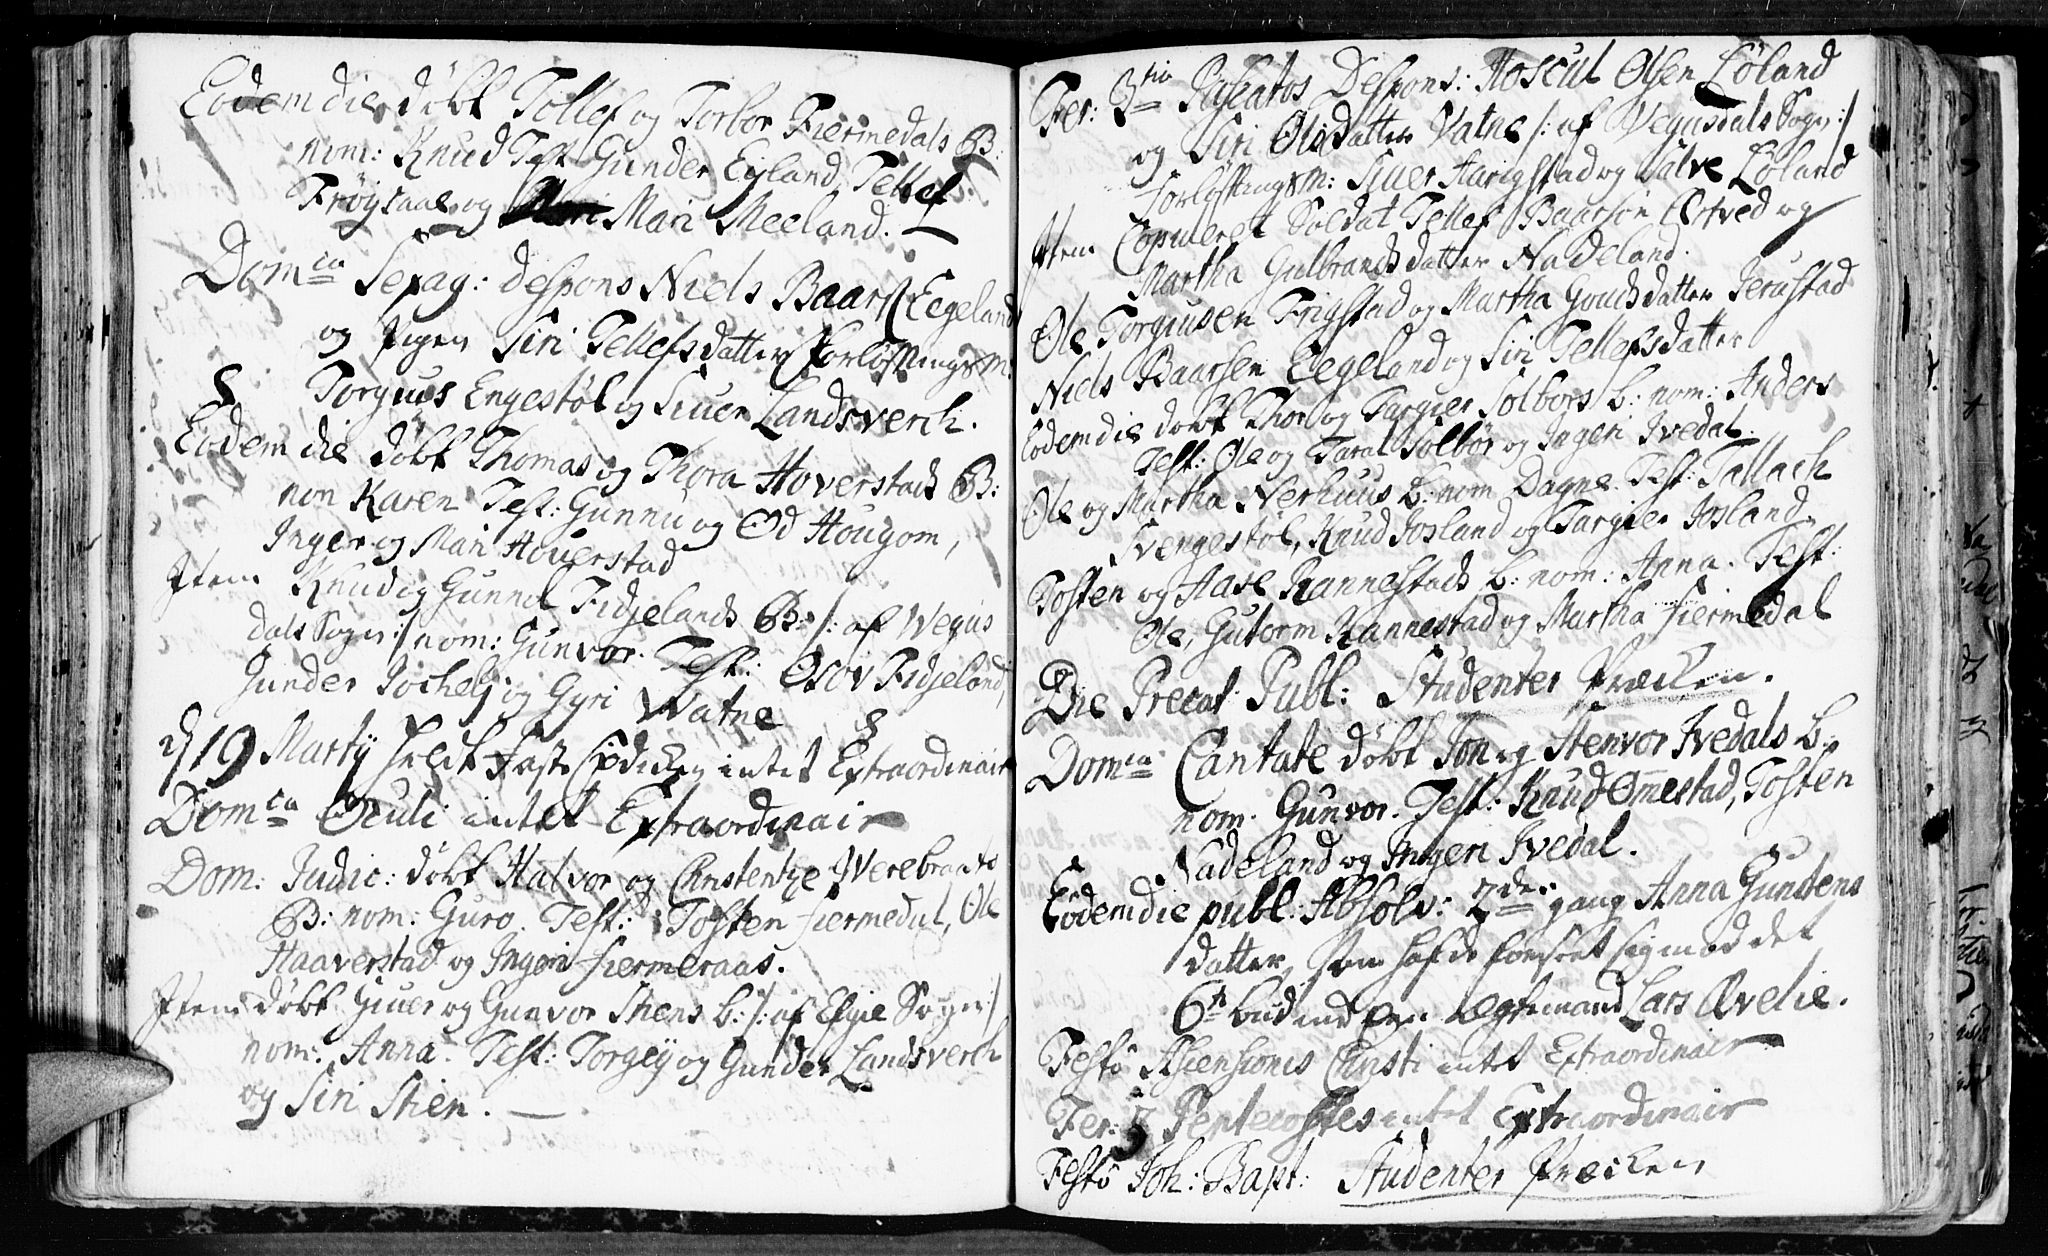 Eodem die døbt Tollef og Torbor Fiermedals B:
nom: Knud Test Gunder Eyland, Tellef
Frøysaae og Mari Meeland.
Domca Sexag: despons Niels Baars: Eegeland
og Pigen Siri Tellefsdatter forløftnings m:
Torgiuus Engestøl og Siuer Landsverch.
Eodem die døbt Thomas og Thora Hoverstads B:
nom Karen Test: Gunnu og Od Hougom,
Inger og Mari Houerstad
Item Knud og Gunnil Fidjelands B: /: af Wegus
dals Sogn :/ nom: Gunvor. Test: Osov Fidjeland,
Gunder Jochelj og Gyri Watne
d 19 Martij holdt Faste Prædicken intet Extraordinair
Domca Oculi intet Extraordinair
Dom: Judic: døbt Halvor og Christentze Werebraats
B: nom: Guro. Test: Tosten fiermedal, Ole
Haaverstad og Ingeri fiermeraas.
Item døbt Giuer og Gunvor Stiens b: /: af Efgie Sogn :/
nom: Anna. Test: Torgey og Gunder Landsverch
og Siri Stien.
Fer: 3tia Paschatos Despons: Hoscul Olsen Løland
og Siri Olsdatter Vatne /: af Vegusdals Sogn :/
forløftnings m: Siuer Harigstad og Salve Løland
Item Copuleret Soldat Tellef Baarsøn Ortved og
Martha Gulbrandsdatter Nadeland.
Ole Torgiusen Frigstad og Martha Gouds datter Jerustad
Niels Baarsen Eegeland og Siri Tellefsdatter
Eodem die døbt Thor og Targier Solbørs b: nom: Anders
Test: Ole og Taral Solbør og Ingeri Ivedal.
Ole og Martha Nerhuus b: nom Dagne. Test: Tallach
Svengestøl, Knud Josland og Targier Josland,
Tosten og Aase Rannestads b: nom: Anna. Test:
Ole, Gutorm Rannestad og Martha fiermedal
Die Precat: Publ: Studenter Præcken.
Domca Cantate døbt Jon og Stenvor Ivedals b:
nom. Gunvor. Test: Knud Ommestad, Tosten
Nadeland og Ingeri Ivedal.
Eodem die publ: Absolv: 2de gang Anna Gunstens
datter, som hafde forseet sig mod det
6te bud med en Ægtemand Lars Øvelie.
Festo Ascensionis Christi intet Extraordinair
Fer: 3 Pentecostes intet Extraordinair
Festo Joh: Bapt: Studenter Præcken